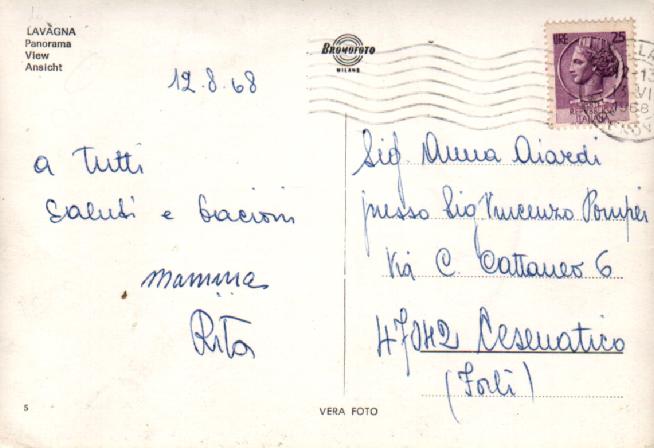 LAVAGNA
Panorama
View
Ansicht
BROMOFOTO
MILANO
LIRE 25
ITALIANA
1968
12.8.68
a Tutti
Saluti e bacioni
Mammina
Rita
Sig. Anna Aiardi
presso Sig Vincenzo Pompei
Via C. Cattaneo 6
47042 Cesenatico
(Forlì)
5
VERA FOTO